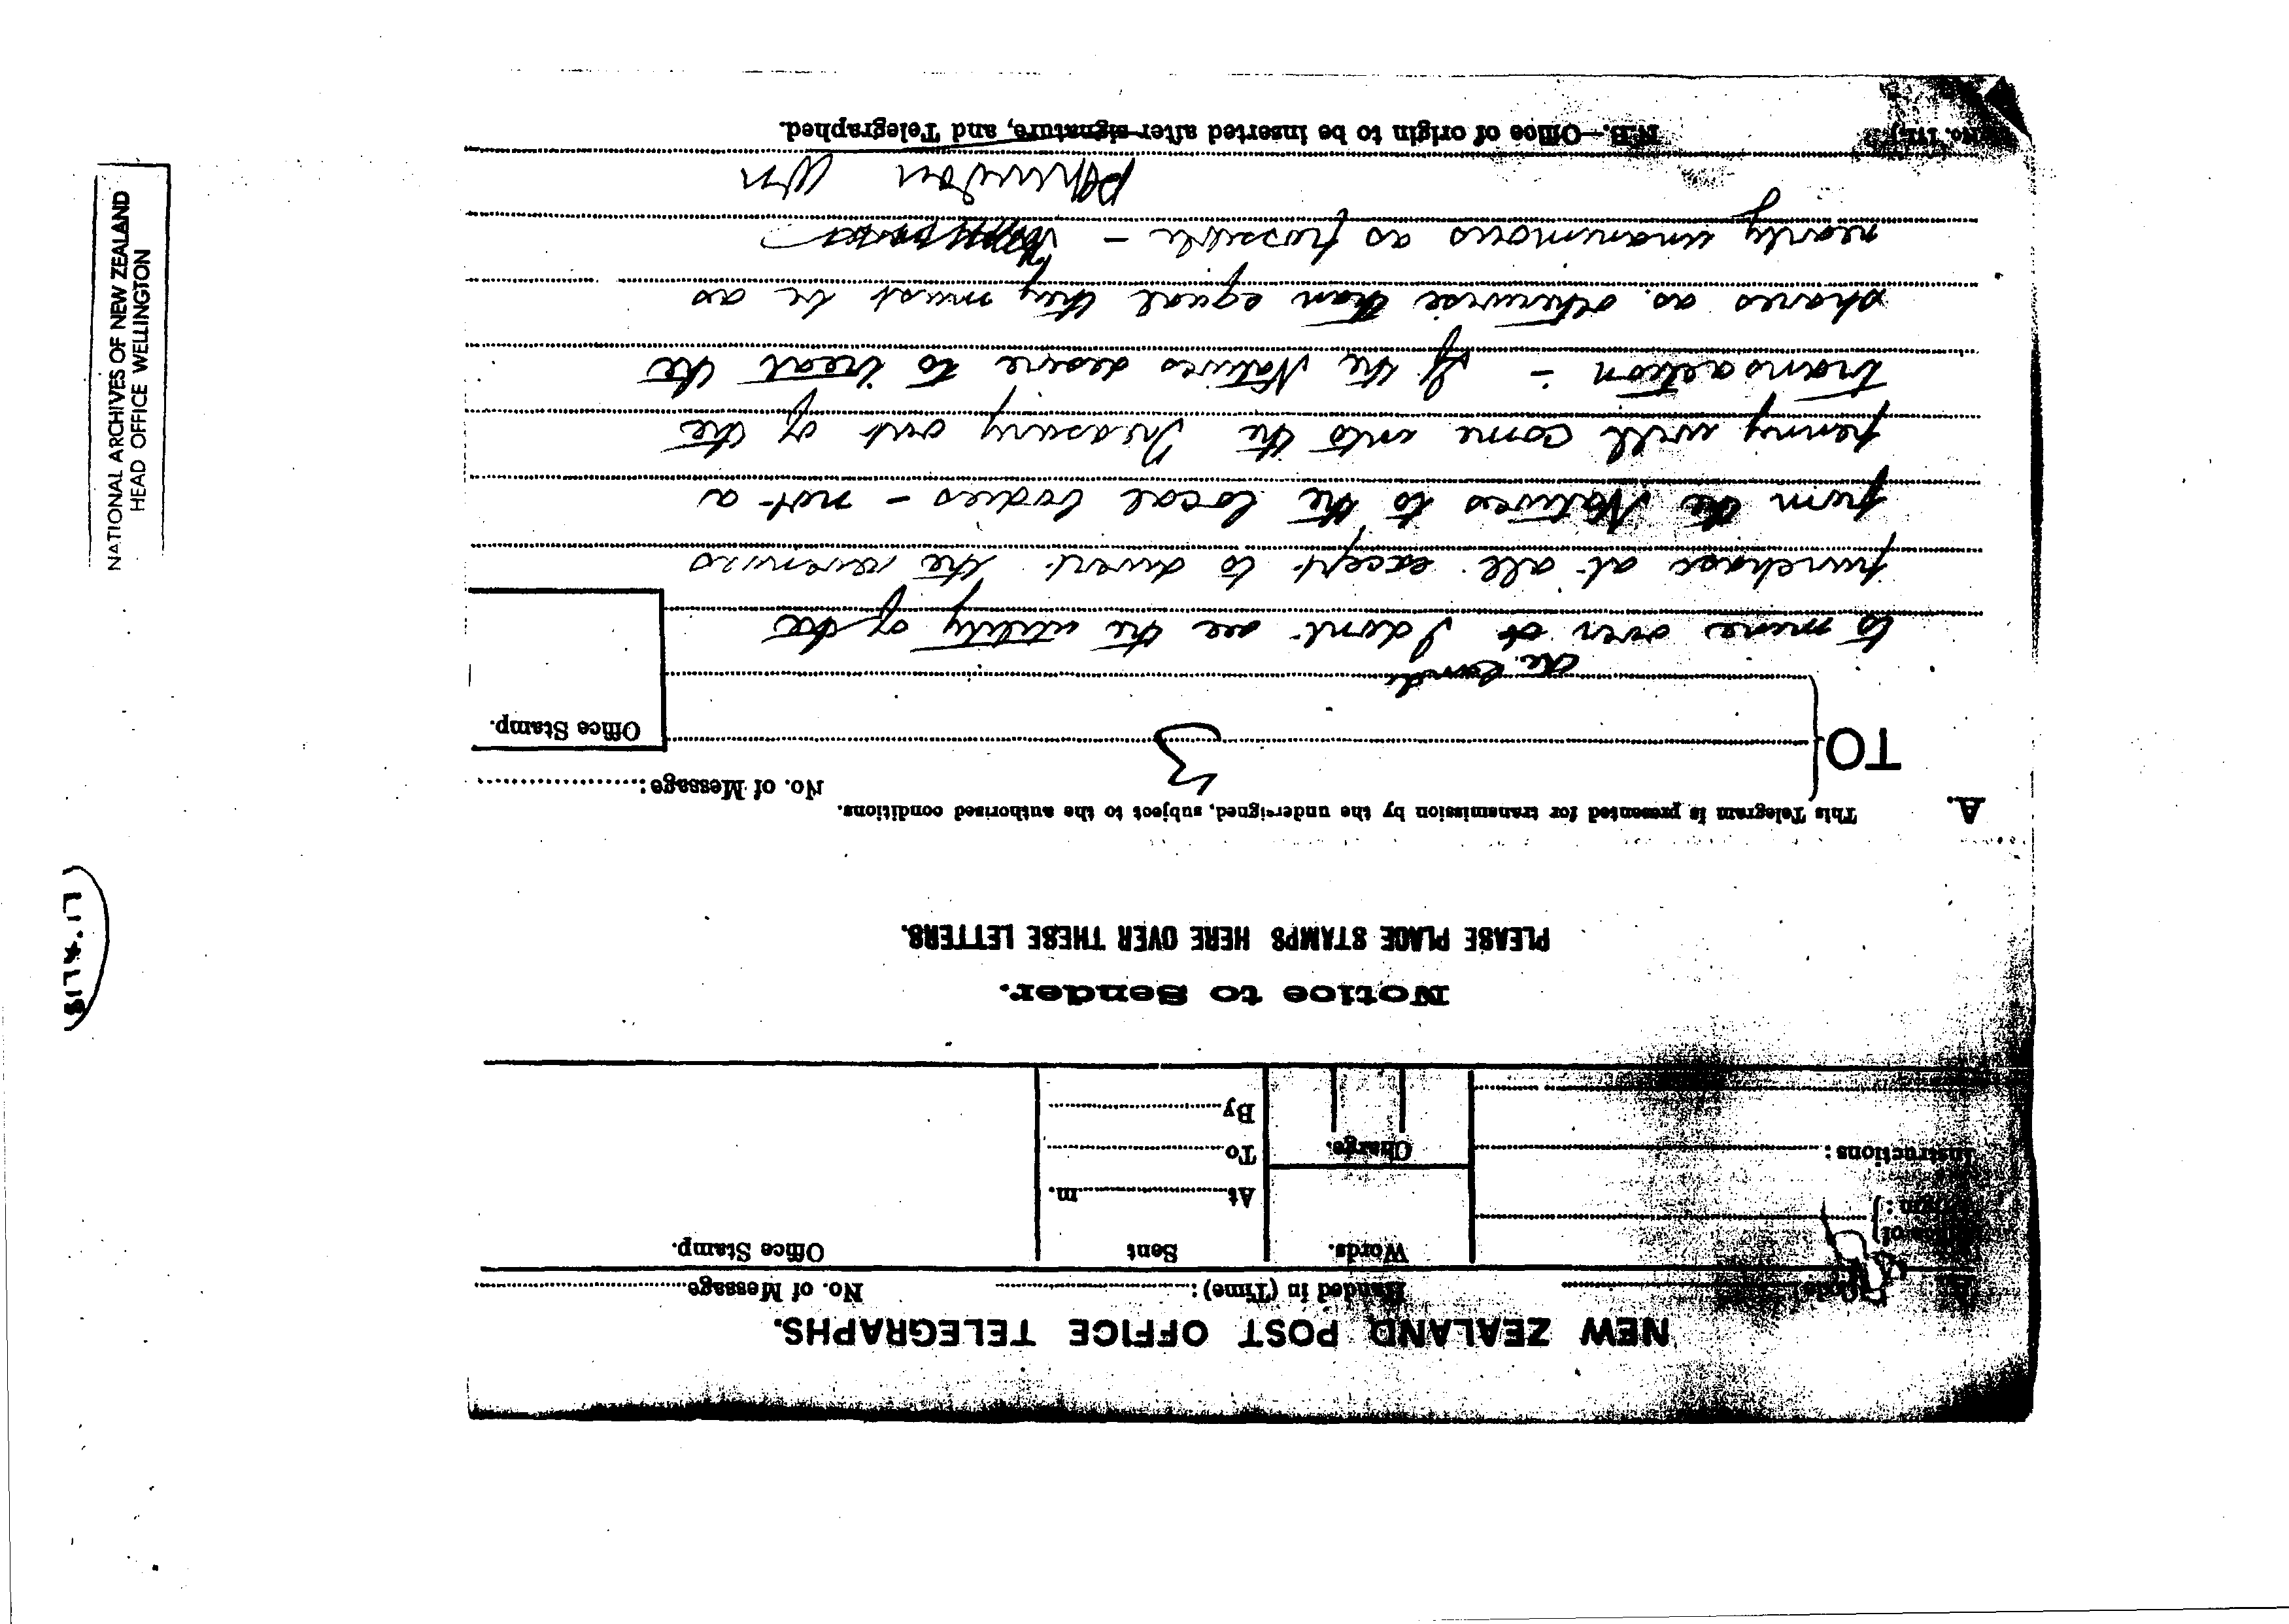 NEW ZEALAND POST OFFICE TELEGRAPHS.
Code: Handed in (Time): No. of Message
Office of Origin:
Instructions:
Words. Sent Office Stamp.
At m.
To
Charge.
By
Notice to Sender.
PLEASE PLACE STAMPS HERE OVER THESE LETTERS.
A. This Telegram is presented for transmission by the undersigned, subject to the authorised conditions.
No. of Message:
3
TO
Office Stamp.
the land
to mine over I dont see the utility of the
purchase at all except to divert the revenues
from the Natives to the local bodies - not a
penny will come into the Treasury out of the
transaction - If the Natives desire to treat the
shares as otherwise than equal they must be as
nearly unanimous as possible -
Wn
N.B.—Office of origin to be inserted after signature, and Telegraphed.
NATIONAL ARCHIVES OF NEW ZEALAND
HEAD OFFICE WELLINGTON